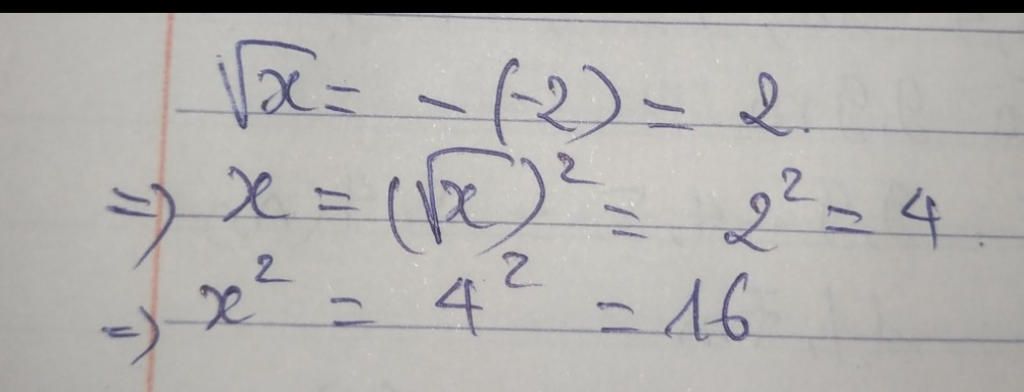 √x = - (-2) = 2.
=) x = (√x)² = 2² = 4.
=) x² = 4² = 16